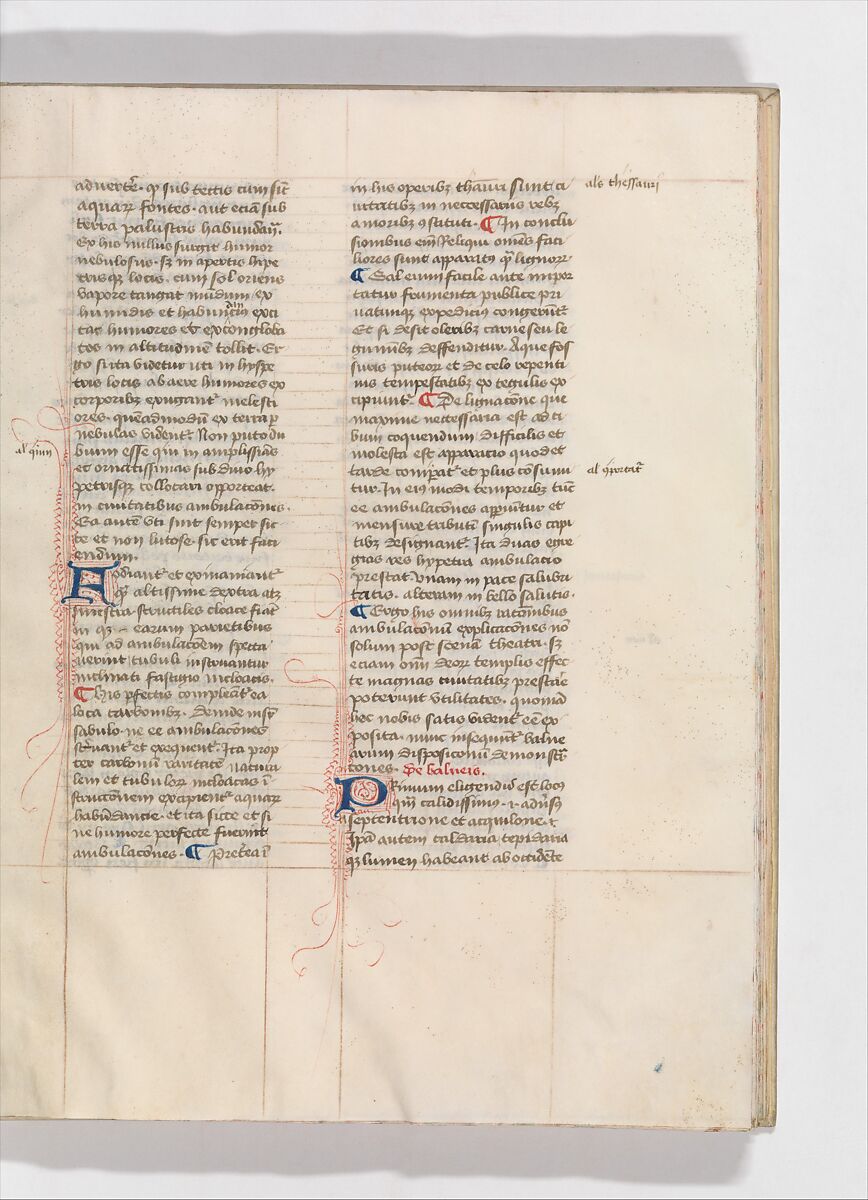 advertē. qꝫ sub tectis cum sīt
aquaꝝ fontes. aut eciā sub
terra palustris habundan̄.
Ex his nullus surgit humor
nebulosus. sꝫ in apertis hipe
trisqꝫ locis. cum sol oriens
vapore tangat mūdum. ex
humidis et habundā exci
tat humores et exconglota
tos in altitudinē tollit. Er
go si ita videtur uti in hyspe
tris locis ab aere humores ex
corporibꝫ exugant̄ molesti
ores. quēadmodū ex terra ꝑ
nebulas vident̄. Non puto du
al qiun
bium esse qiu in amplissīas
et ornatissimas sub diuo hy
petrisqꝫ collocari opporteat.
in ciuitatibus ambulacōnes.
Ea autē vti sint semper sic
te et non lutose. sic erit faci
endum.
Fodiant̄ et exinaniant̄
qꝫ altissime dextra atqꝫ
sinestra. structiles cloace fiāt
in qꝫ earum parietibus
qui ad ambulacōem specta
uerint tubuli instruantur
inclinati fastigio in cloacis.
¶ his ꝑfectis compleāt̄ ea
loca carbonibꝫ. Deinde insr̄
sabulo. ne ee ambulacōnes
st̄uant̄ et exequent̄. Ita prop
ter carbonū raritatē natura
lem et tubuloꝝ in cloacas ī
structionem excipient̄ aquaꝝ
habūdancie. et ita sicce et si
ne humore perfecte fuerint
ambulacōnes. ¶ Pret̄ea ī
in his operibꝫ thāuri sunt ci
als thessauri
uitatibꝫ in necessarijs rebꝫ
a moribꝫ ꝯstituti. ¶ In conclu
sionibus em̄ Reliqui omēs faci
liores sunt apparatꝰ qꝫ lignoꝝ.
¶ Sal eum facile ante impor
tatur frumenta publice pri
uatimqꝫ expediciꝰ congerunt̄.
Et si desit oleribꝫ carne seu le
guminibꝫ deffenditur. Aque fos
suris puteoꝝ et de celo repenti
nis tempestatibꝫ ex tegulis ex
cipiunt̄. ¶ De lignacōne que
maxime necessaria est ad ci
bum coquendum. difficilis et
molesta est apparacio quod et
tarde comp̄at̄ et plus cōsumi
al qportat̄
tur. In eiꝰmodi temporibꝫ tūc
ee ambulacōnes apperiuntur et
mensure tributī singulis capi
tibꝫ designant̄. Ita duas egre
gias res hypetra ambulacio
prestat. vnam in pace salubri
tatis. alteram in bello salutis.
¶ Ergo his omībꝫ racōnibus
ambulacōnū explicacōnes nō
solum post scenā theatri. sꝫ
eciam oīm deoꝝ templis effec
te magnas ciuitatibꝫ prestare
poterunt vtilitates. quoniā
hec nobis satis vident̄ ee ex
posita. nunc insequūt̄ balne
arum disposicionū demonstr̄
cōnes. De balneis.
Primum eligendꝰ est locꝰ
qm̄ calidissimꝰ. i. adūsꝰ
a septentrione et acquilone. i.
Ip̄a autem caldaria tepidaria
qꝫ lumen habeant ab occidente